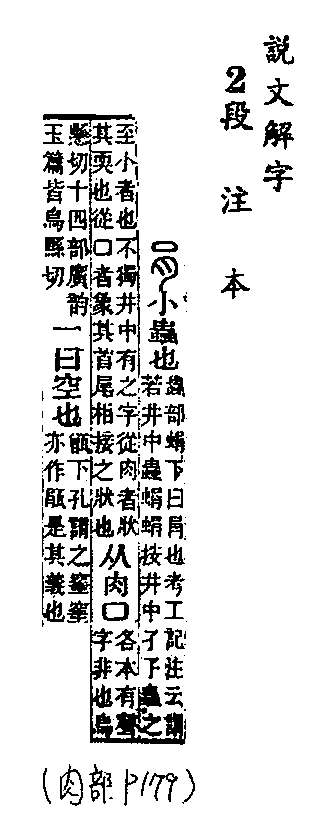 説文解字
2段注本
肙小蟲也
蟲部蜎下曰肙也考工記注云謂
若井中蟲蜎蜎按井中孑孓蟲之
至小者也不獨井中有之字從肉者狀
其耎也從口者象其首尾相接之狀也
从肉口
各本有聲
字非也烏
懸切十四部廣韵
玉篇皆烏縣切
一曰空也
甑下孔謂之窐窐
亦作是其義也
(肉部P179)